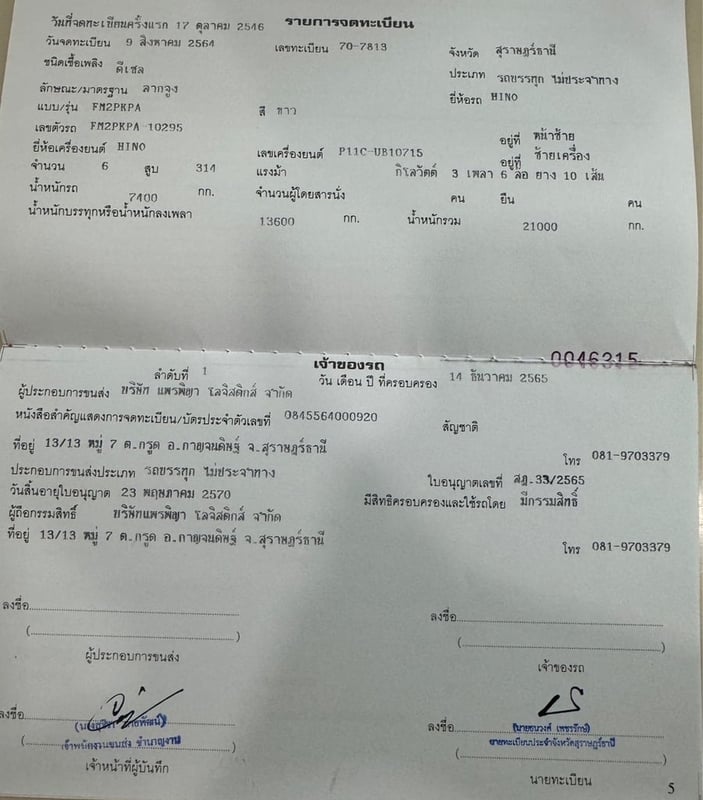 วันที่จดทะเบียนครั้งแรก 17 ตุลาคม 2546 รายการจดทะเบียน
วันจดทะเบียน 9 สิงหาคม 2564 เลขทะเบียน 70-7813 จังหวัด สุราษฎร์ธานี
ชนิดเชื้อเพลิง ดีเซล ประเภท รถบรรทุก ไม่ประจำทาง
ลักษณะ/มาตรฐาน ลากจูง ยี่ห้อรถ HINO
แบบ/รุ่น FM2PKPA สี ขาว
เลขตัวรถ FM2PKPA-10295 อยู่ที่ หน้าซ้าย
ยี่ห้อเครื่องยนต์ HINO เลขเครื่องยนต์ P11C-UB10715 อยู่ที่ ซ้ายเครื่อง
จำนวน 6 สูบ 314 แรงม้า กิโลวัตต์ 3 เพลา 6 ล้อ ยาง 10 เส้น
น้ำหนักรถ 7400 กก. จำนวนผู้โดยสารนั่ง คน ยืน คน
น้ำหนักบรรทุกหรือน้ำหนักลงเพลา 13600 กก. น้ำหนักรวม 21000 กก.
0046315
เจ้าของรถ
ลำดับที่ 1 วัน เดือน ปี ที่ครอบครอง 14 ธันวาคม 2565
ผู้ประกอบการขนส่ง บริษัท แพรพิญา โลจิสติกส์ จำกัด
หนังสือสำคัญแสดงการจดทะเบียน/บัตรประจำตัวเลขที่ 0845564000920 สัญชาติ
ที่อยู่ 13/13 หมู่ 7 ต.กรูด อ.กาญจนดิษฐ์ จ.สุราษฎร์ธานี โทร 081-9703379
ประกอบการขนส่งประเภท รถบรรทุก ไม่ประจำทาง ใบอนุญาตเลขที่ สฎ.33/2565
วันสิ้นอายุใบอนุญาต 23 พฤษภาคม 2570 มีสิทธิครอบครองและใช้รถโดย มีกรรมสิทธิ์
ผู้ถือกรรมสิทธิ์ บริษัทแพรพิญา โลจิสติกส์ จำกัด
ที่อยู่ 13/13 หมู่ 7 ต.กรูด อ.กาญจนดิษฐ์ จ.สุราษฎร์ธานี โทร 081-9703379
ลงชื่อ ลงชื่อ
(....................) (....................)
ผู้ประกอบการขนส่ง เจ้าของรถ
ลงชื่อ ลงชื่อ (นายธนวงศ์ เพชรรักษ์)
เจ้าพนักงานขนส่ง ชำนาญงาน นายทะเบียนประจำจังหวัดสุราษฎร์ธานี
เจ้าหน้าที่ผู้บันทึก นายทะเบียน
5